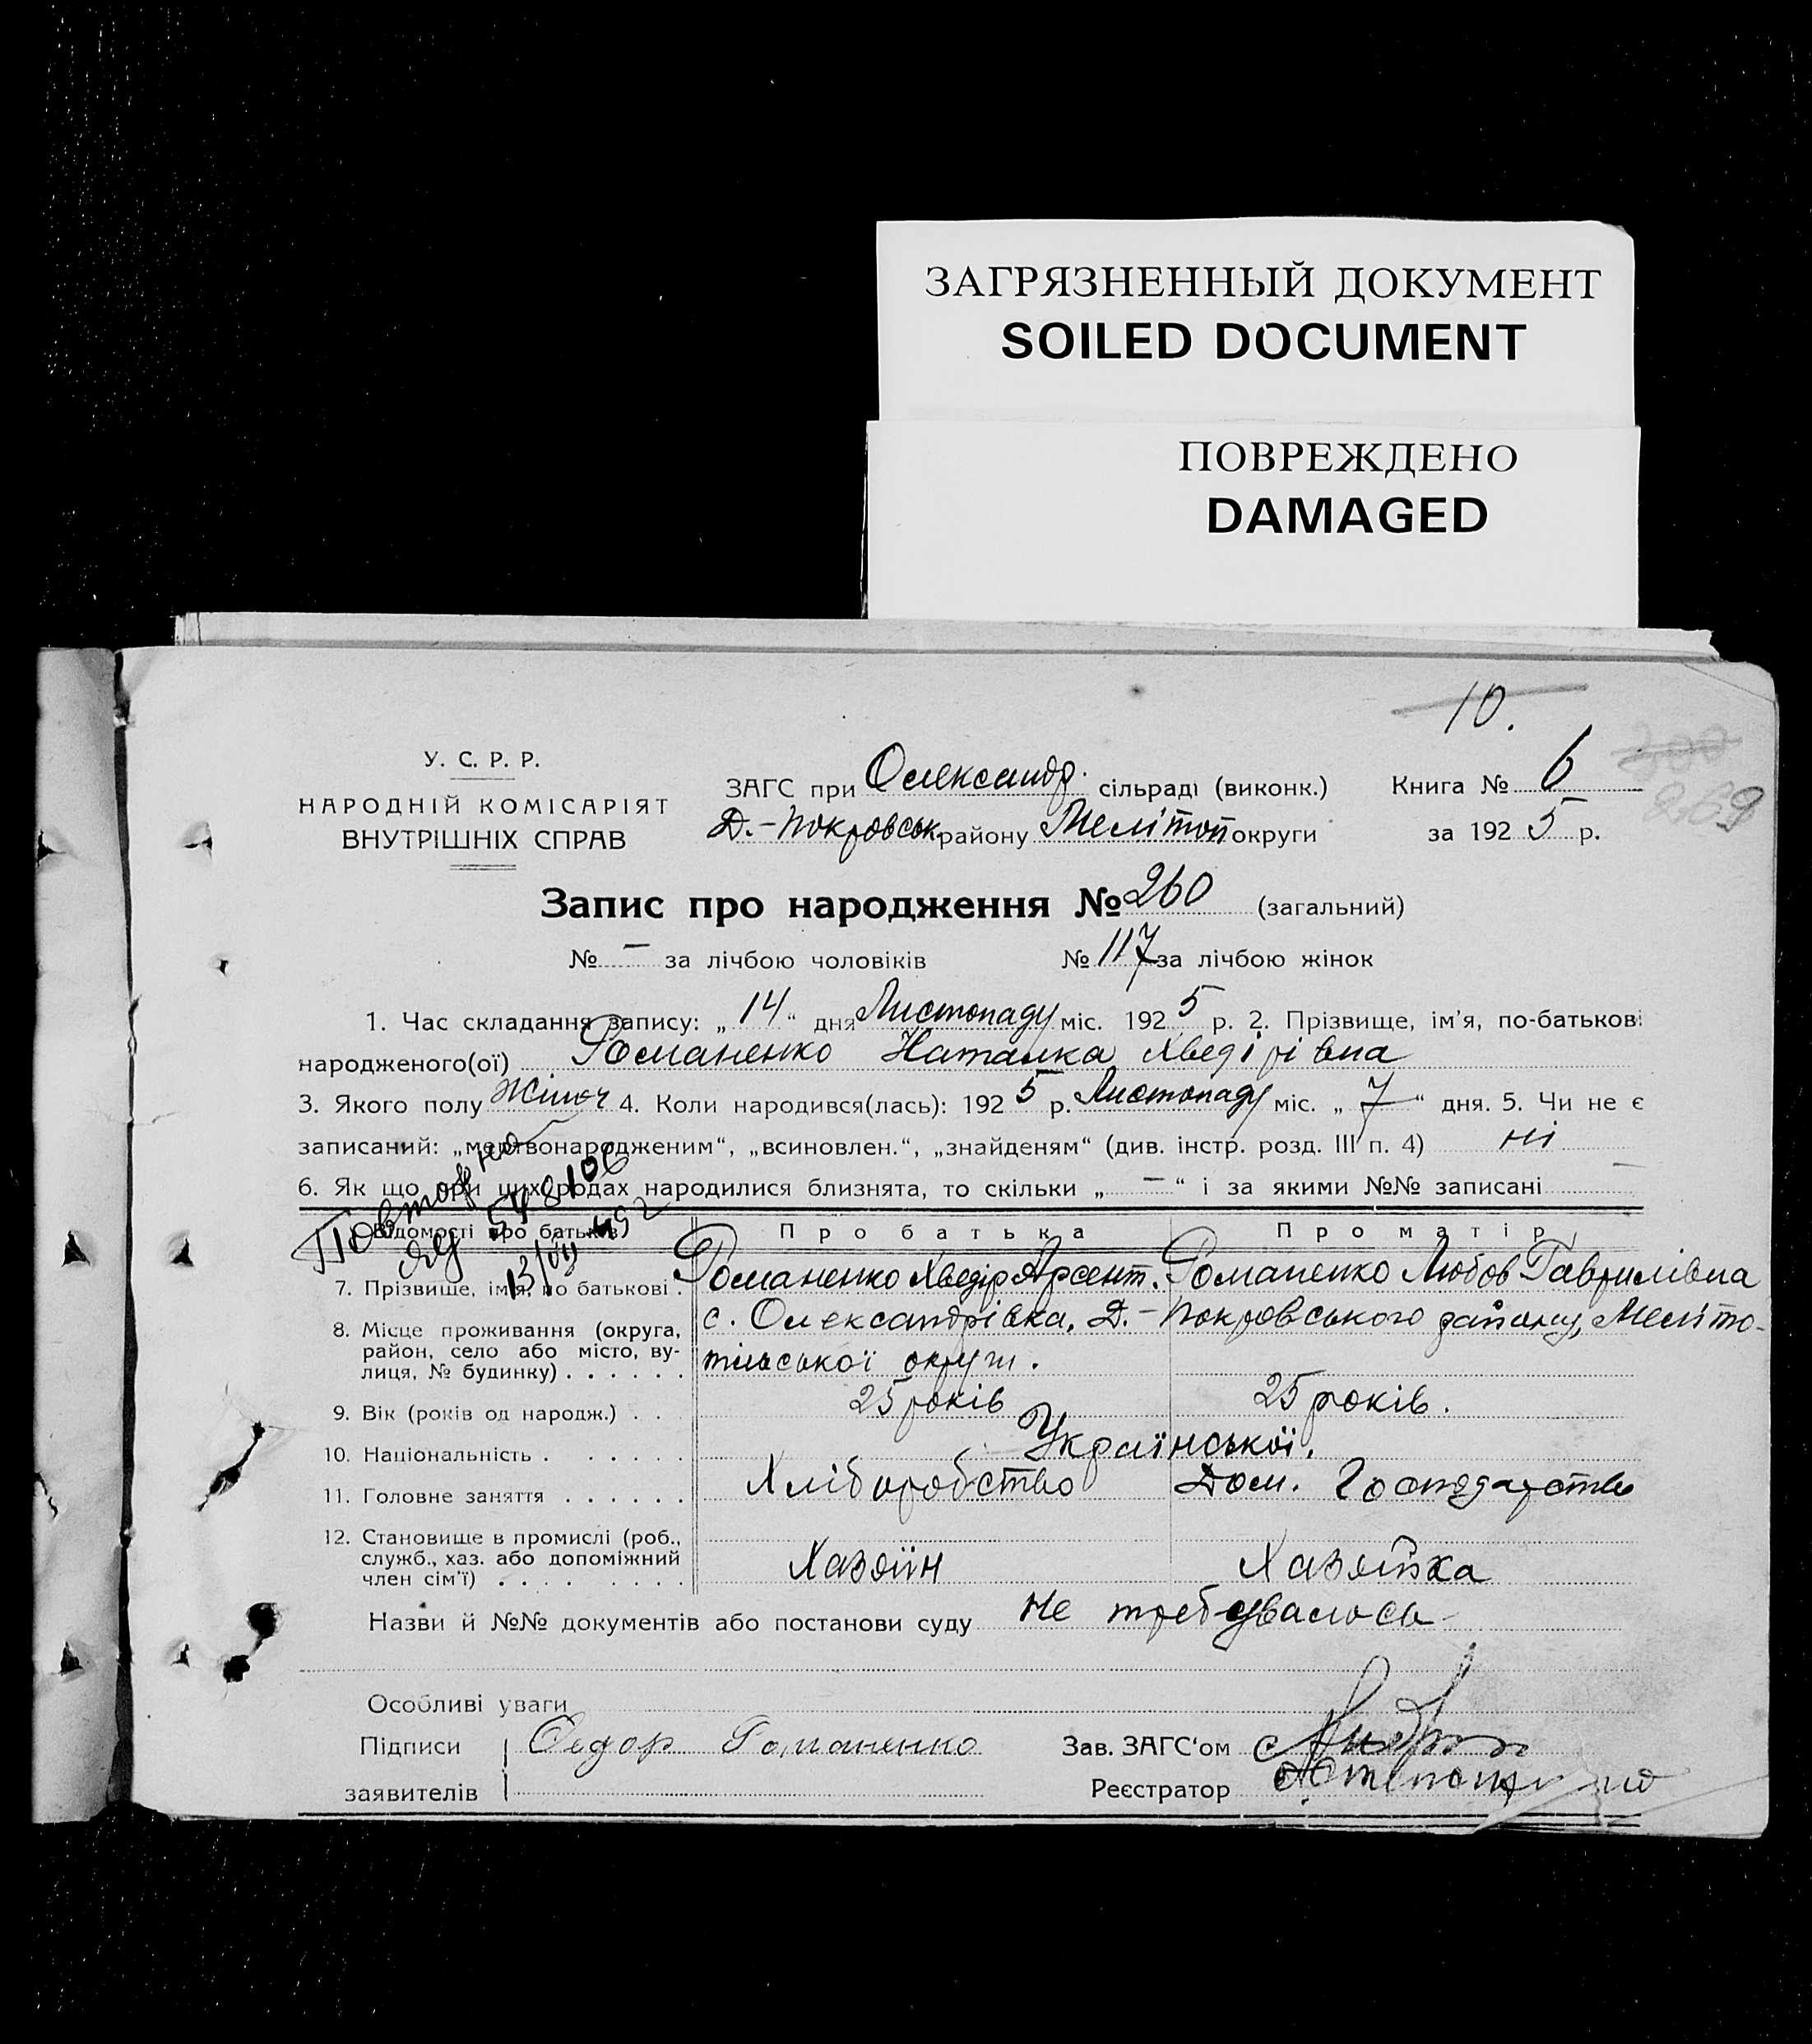 ЗАГРЯЗНЕННЫЙ ДОКУМЕНТ
SOILED DOCUMENT
ПОВРЕЖДЕНО
DAMAGED
10.
У. С. Р. Р.
НАРОДНІЙ КОМІСАРІЯТ
ВНУТРІШНІХ СПРАВ
ЗАГС при Олександр. сільраді (виконк.) Книга № 6
269
Д.-Покровськ району Меліітоп округи за 1925 р.
Запис про народження № 260 (загальний)
№ — за лічбою чоловіків № 117 за лічбою жінок
1. Час складання запису: „14“ дня Листопаду міс. 1925 р. 2. Прізвище, ім’я, по-батькові
народженого(ої) Романенко Наталка Хведірівна
3. Якого полу Жіноч 4. Коли народився(лась): 1925 р. Листопаду міс. „7“ дня. 5. Чи не є
записаний: „мертвонародженим“, „всиновлен.“, „знайденям“ (див. інстр. розд. III п. 4) ні
6. Як що при цих родах народилися близнята, то скільки „—“ і за якими №№ записані —
Повторно
ЯЯ 548106
Відомості про батьків Про батька Про матір
7. Прізвище, імя, по батькові . Романенко Хведір Арсент. Романенко Любов Гаврилівна
8. Місце проживання (округа, район, село або місто, вулиця, № будинку) . . . . . . с. Олександрівка, Д.-Покровського району, Меліто-
пільської округи.
9. Вік (років од народж.) . . 25 років 25 років.
10. Національність . . . . . . Української.
11. Головне заняття . . . . . . Хліборобство Дом. Господарство
12. Становище в промислі (роб., служб., хаз. або допоміжний член сім’ї) . . . . . . . . Хазяїн Хазяйка
Назви й №№ документів або постанови суду не требувалось
Особливі уваги
Підписи Федор Романенко Зав. ЗАГС‘ом
заявителів Реєстратор